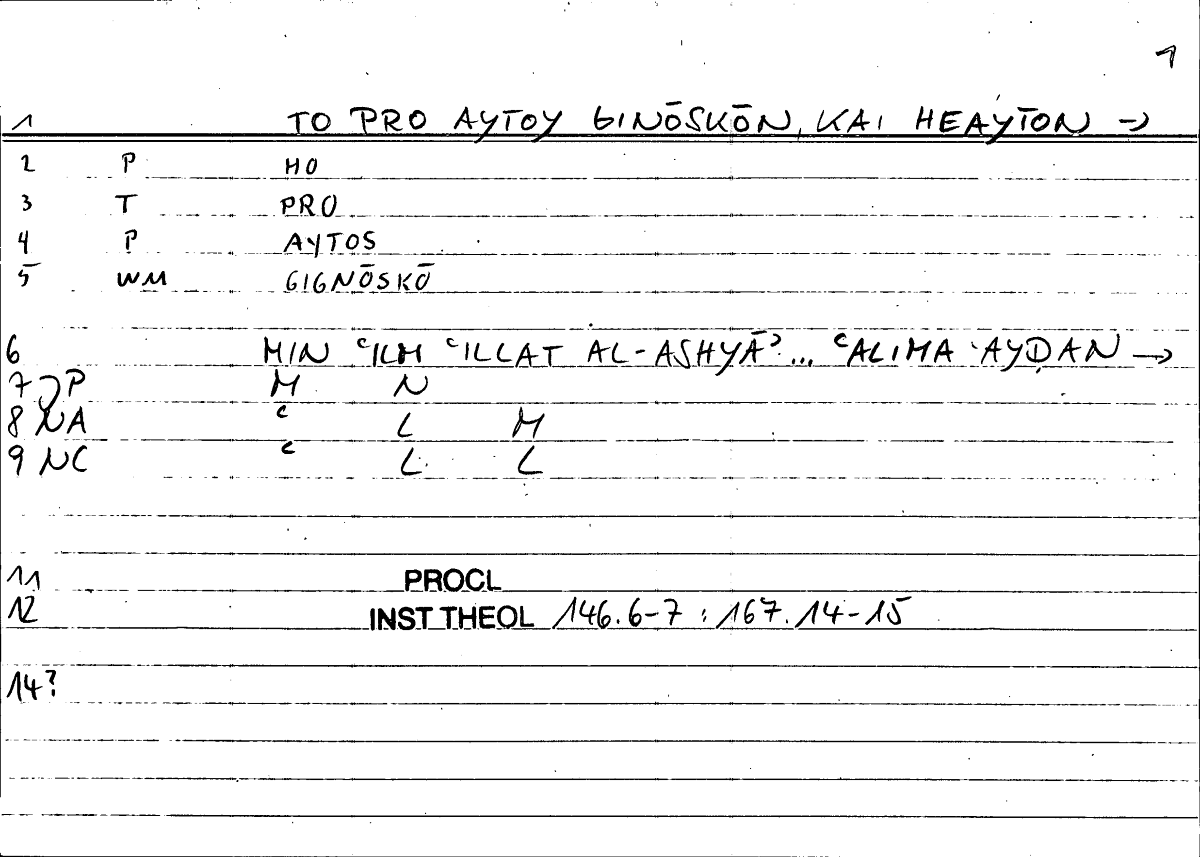 1
1 TO PRO AYTOY GINŌSKŌN, KAI HEAYTON →
2 P HO
3 T PRO
4 P AYTOS
5 WM GIGNŌSKŌ
6 MIN ʿILM ʿILLAT AL-ASHYĀʾ... ʿALIMA ʾAYḌAN →
7 P M N
8 NA ʿ L M
9 NC ʿ L L
11 PROCL
12 INST THEOL 146.6-7 : 167.14-15
14?